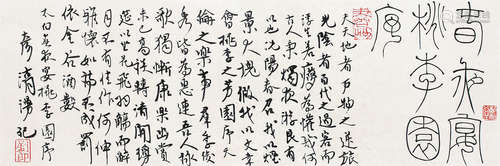 春夜宴
桃李園
序
夫天地者萬物之逆旅
光陰者百代之過客而
浮生若夢為懽幾何
古人秉燭夜遊良有
以也況陽春召我以煙
景大塊假我以文章
會桃李之芳園序天
倫之樂事群季俊
秀皆為惠連吾人詠
歌獨慚康樂幽賞
未已高談轉清開瓊
筵以坐花飛羽觴而醉
月不有佳作何伸
雅懷如詩不成罰
依金谷酒數
李白春夜宴桃李園序